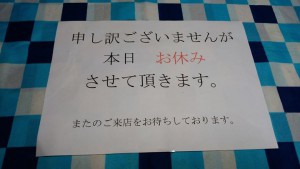 申し訳ございませんが
本日　お休み
させて頂きます。
またのご来店をお待ちしております。